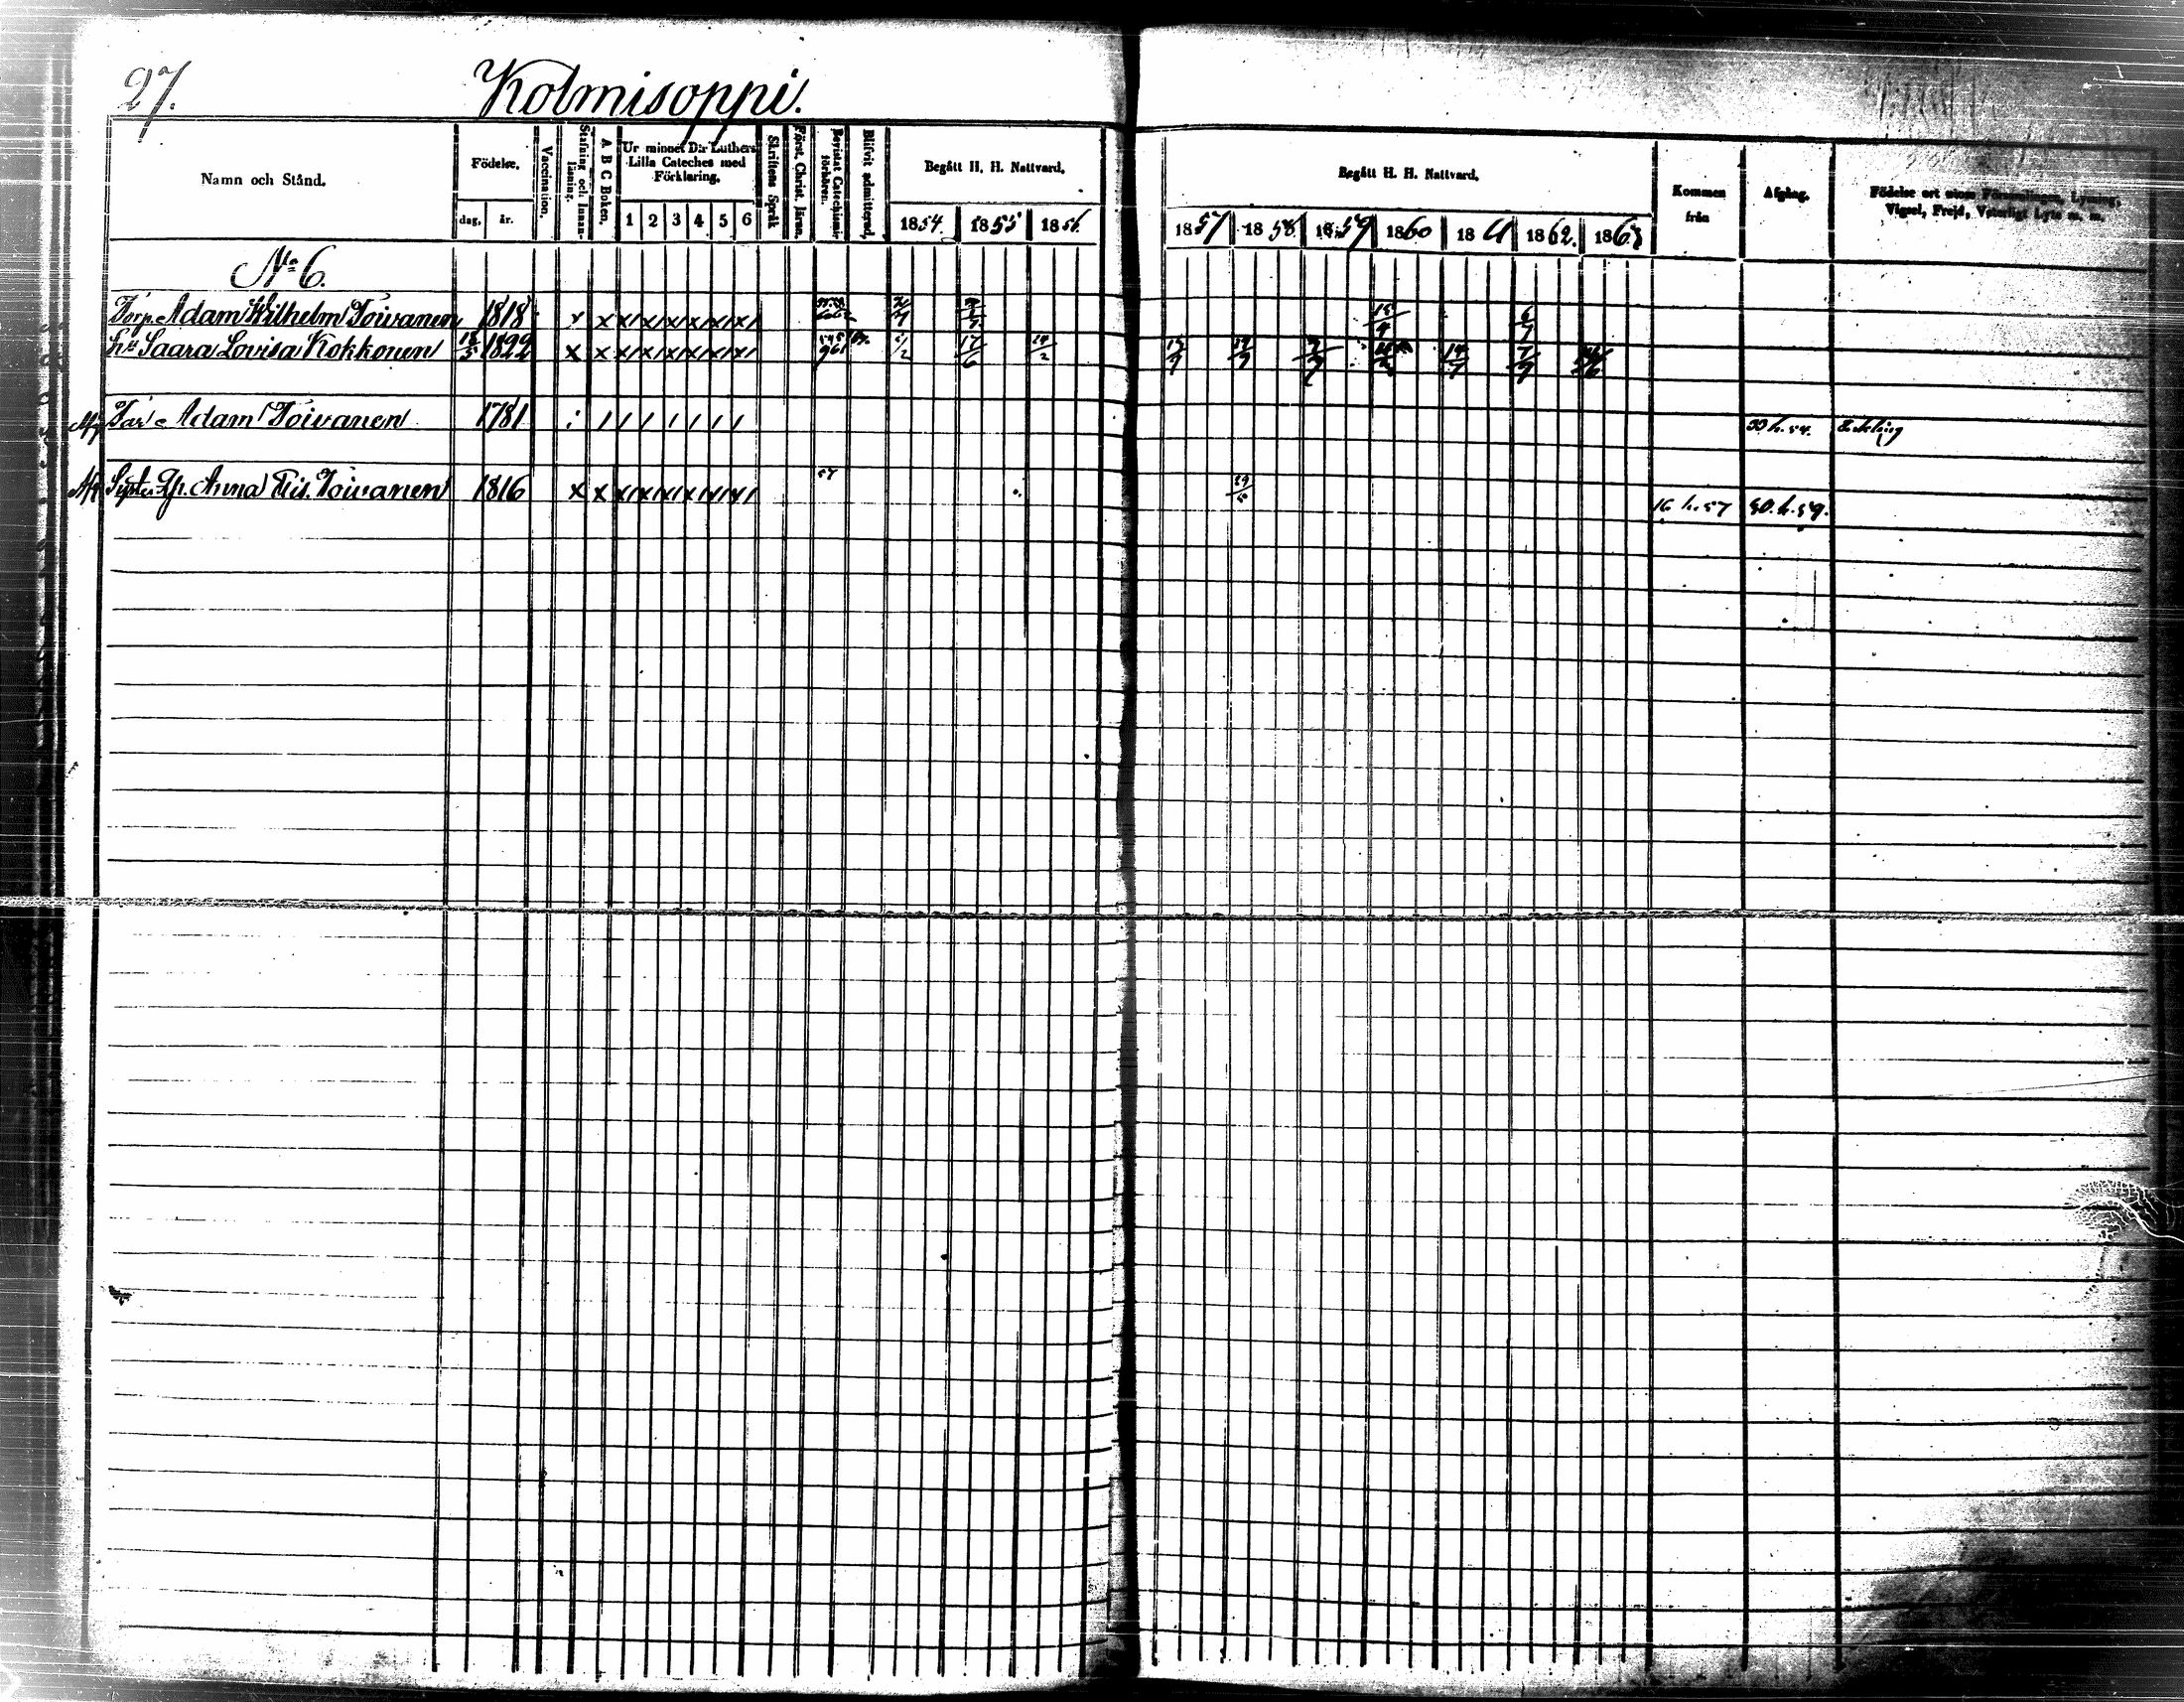 27.
Kolmisoppi.
Namn och Stånd.
Födelse.
dag. år.
Vaccination.
Stafning och innanläsning.
A B C Boken.
Ur minnet D:r Luthers Lilla Cateches med Förklaring.
1 2 3 4 5 6
Skriftens Språk
Först. Christ. Järan.
Bevistat Catechismi förhören.
Blifvit admitterad.
Begått H. H. Nattvard.
1854. 1855 1856.
Begått H. H. Nattvard.
1857 1858. 1859 1860 1861 1862. 1863
Kommen från
Afgång.
Födelse ort utom Församlingen, Lysning, Vigsel, Frejd, Veterligt Lyte m. m.
No 6.
Torp. Adam Wilhelm Toivanen 1818 x x x x x x x x 15/9 6/7
Saara Lovisa Kokkonen 18/5 1822 x x x x x x x x 17/6 14/2
Far Adam Toivanen 1781
Syster Anna Elis. Toivanen 1816 x x x x x x x x 57 29/5 16 h. 57 50. h. 59.